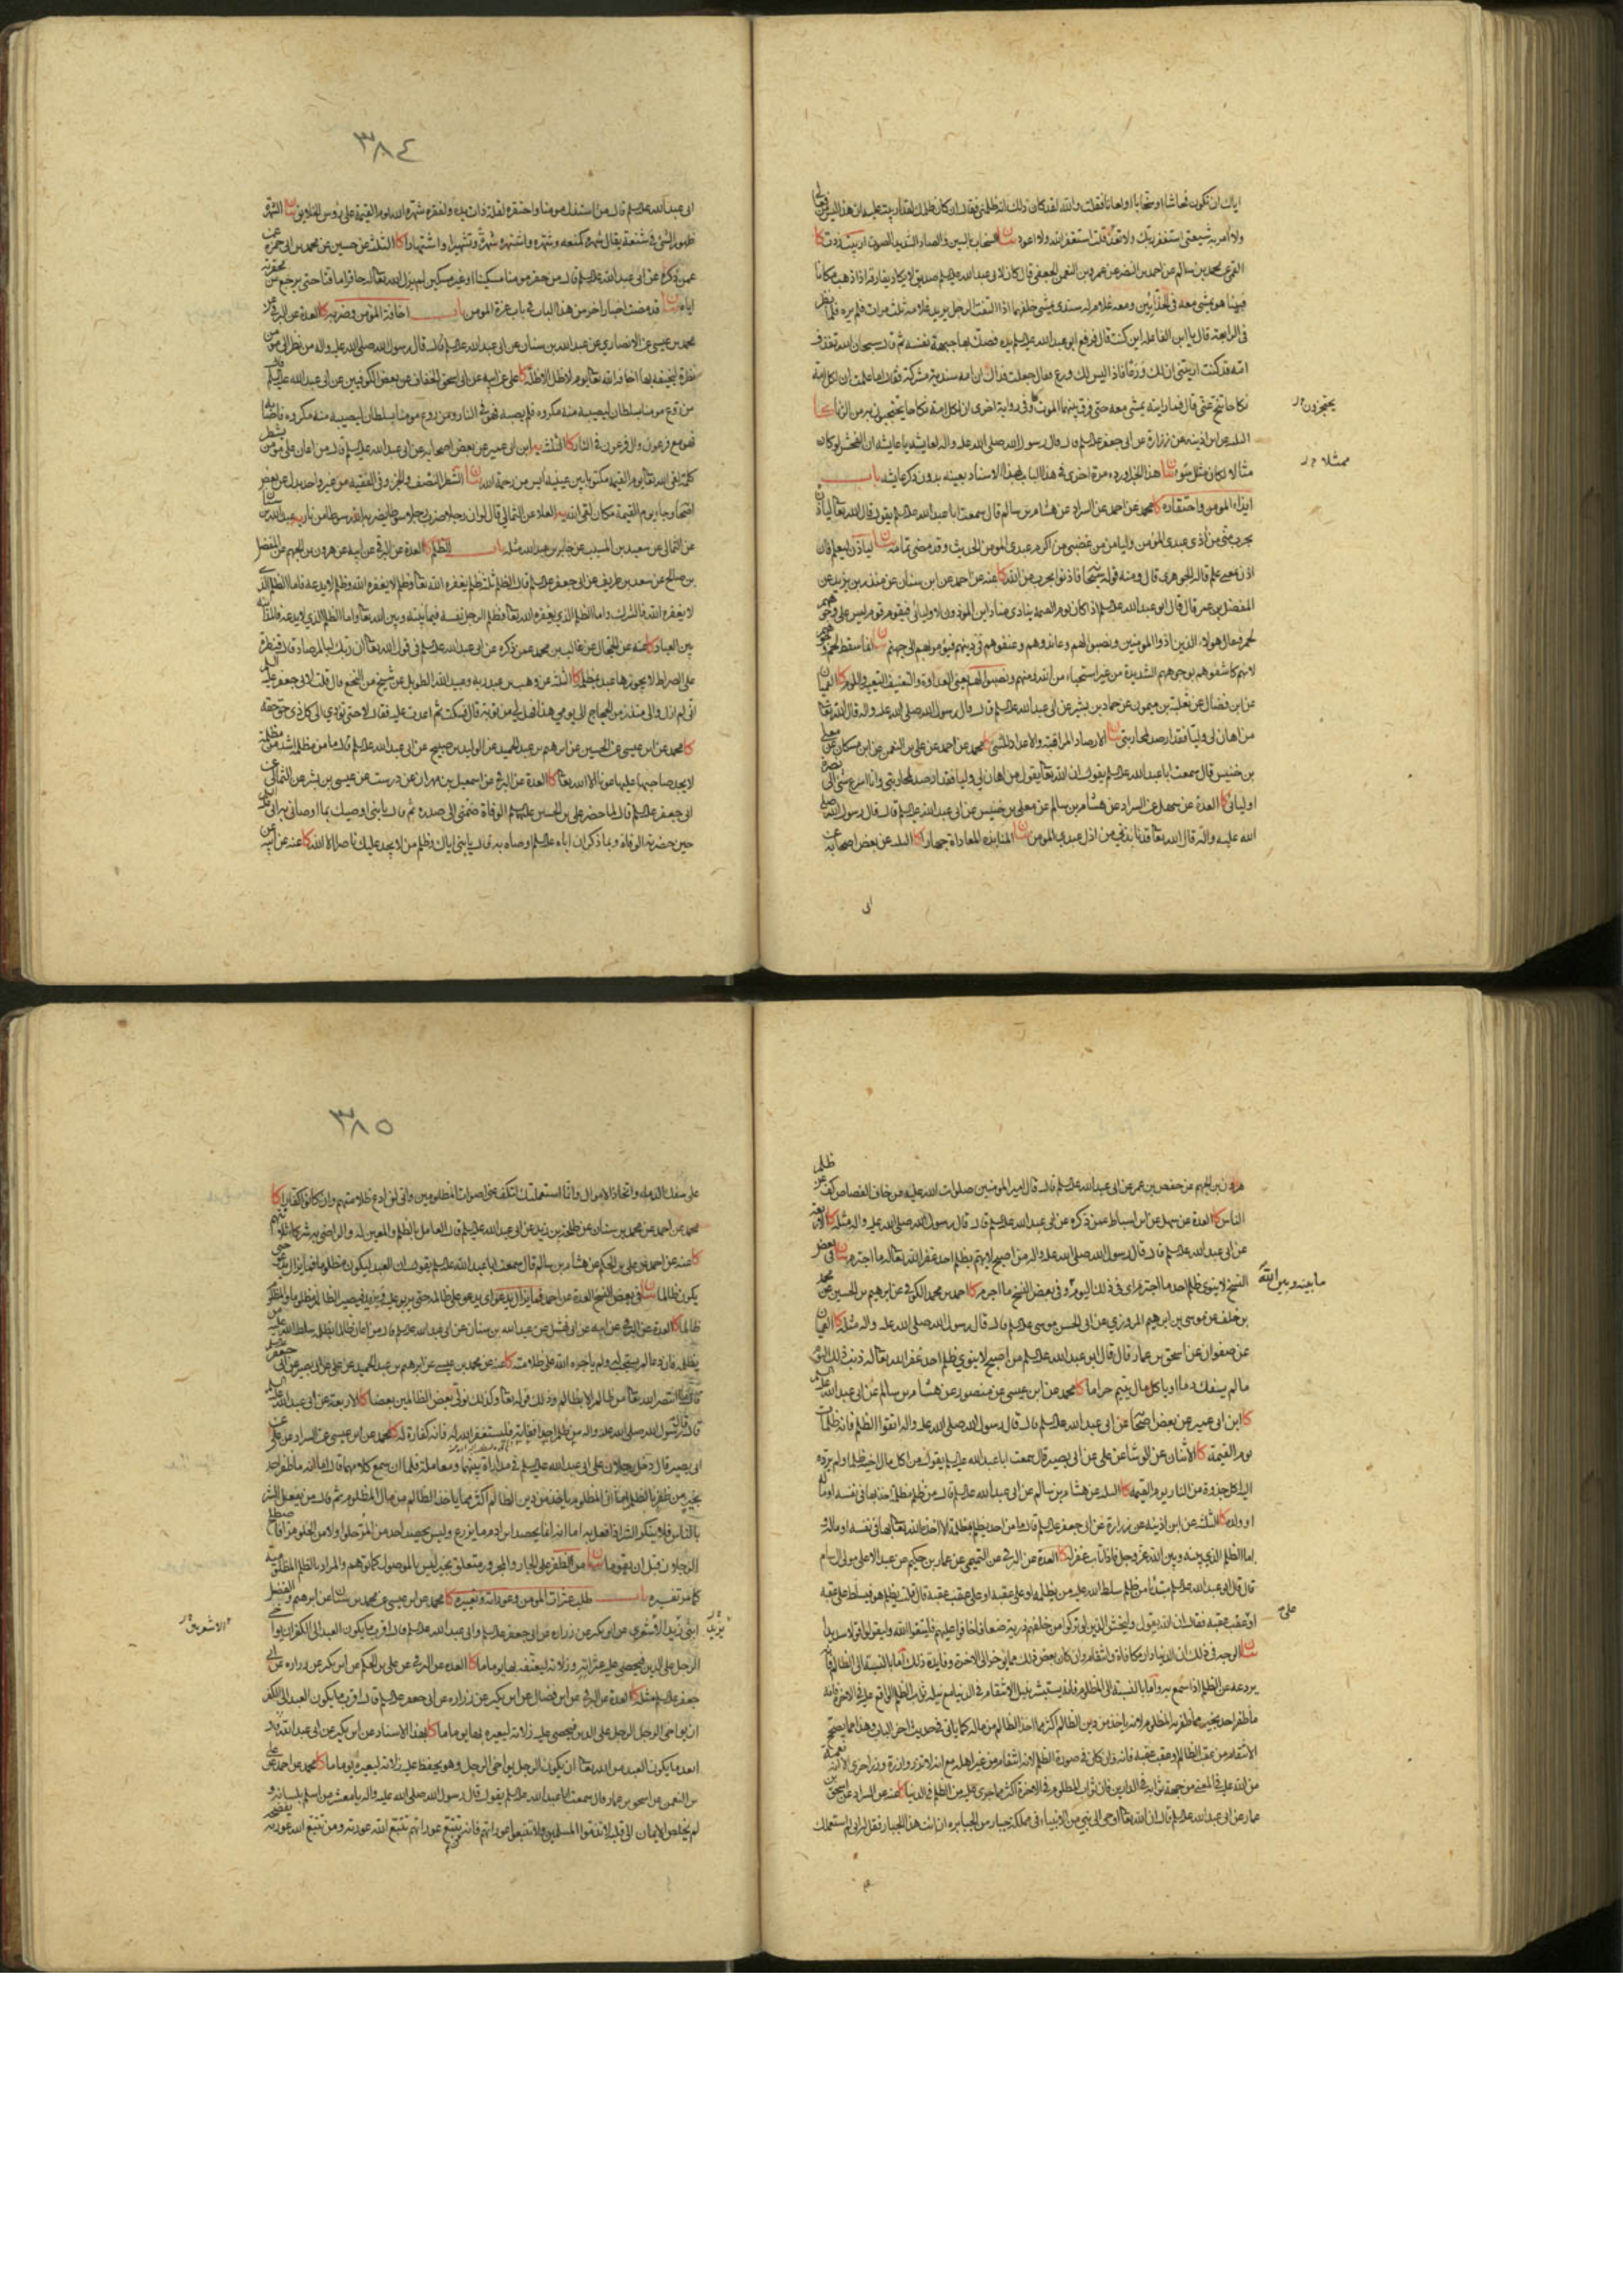 اياك ان تكون فحاشا او سخابا او لعانا فقلت والله لقد كان ذلك انه ظلمني فقال ان كان ظلمك لقد اربيت عليه ان هذا ليس من فعالي
ولا آمر به شيعتي استغفر ربك ولا تعد قلت استغفر الله ولا اعود بيان السخاب بالسين والصاد الشديد الصوت اربيت زدت كا
محمد بن سالم عن احمد بن النضر عن عمرو بن النعمن الجعفي قال كان لابي عبد الله عليه السلم صديق لا يكاد يفارقه اذا ذهب مكانا
فبينما هو يمشي معه في الحذائين ومعه غلام له سندي يمشي خلفهما اذا التفت الرجل يريد غلامه ثلث مرات فلم يره فلما نظر
في الرابعة قال يا ابن الفاعلة اين كنت قال فرفع ابو عبد الله عليه السلم يده فصك بها جبهة نفسه ثم قال سبحان الله تقذف
امه قد كنت اريتني ان لك ورعا فاذا ليس لك ورع فقال جعلت فداك ان امه سندية مشركة فقال اما علمت ان لكل امة
نكاحا تنح عني قال فما رايته يمشي معه حتى فرق بينهما الموت وفي رواية اخرى ان لكل امة نكاحا يحتجبون به من الزنا كا
يحتجزون
الثلثة عن ابن اذينة عن زرارة عن ابي جعفر عليه السلم قال قال رسول الله صلى الله عليه واله لعايشة يا عايشة ان الفحش لو كان
مثالا لكان مثل سوء بيان هذا الخبر اورده مرة اخرى في هذا الباب بهذا الاسناد بعينه بدون ذكر عايشة باب
ممثلا
ايذاء المومن واحتقاره كا محمد عن احمد عن السراد عن هشام بن سالم قال سمعت ابا عبد الله عليه السلم يقول قال الله تعالى لياذن
بحرب مني من آذى عبدي المؤمن وليامن من غضبي من اكرم عبدي المومن الحديث وقد مضى تمامه بيان لياذن ليعلم فان
اذن بمعنى علم قاله الجوهري قال ومنه قوله سبحانه فاذنوا بحرب من الله كا عنه عن احمد عن ابن سنان عن منذر بن يزيد عن
المفضل بن عمر قال قال ابو عبد الله عليه السلم اذا كان يوم القيمة ينادي مناد اين الموذون لاوليائي فيقوم قوم ليس على وجوههم
لحم فيقال هولاء الذين آذوا المومنين ونصبوا لهم وعاندوهم وعنفوهم في دينهم فيؤمر بهم الى جهنم بيان انما سقط لحم وجوههم
لانهم كاشفوهم بوجوههم الشديدة من غير استحياء من الله ومنهم ونصبوا لهم يعني العداوة والتعنيف التعيير واللوم كا القميان
عن ابن فضال عن ثعلبة بن ميمون عن حماد بن بشير عن ابي عبد الله عليه السلم قال قال رسول الله صلى الله عليه واله قال الله تعالى
من اهان لي وليا فقد ارصد لمحاربتي بيان الارصاد المراقبة والاعداد للشيء كا محمد عن احمد عن علي بن النعمن عن ابن مسكان عن معلى
بن خنيس قال سمعت ابا عبد الله عليه السلم يقول ان الله تعالى يقول من اهان لي وليا فقد ارصد لمحاربتي وانا اسرع شيء الى نصرة
اوليائي كا العدة عن سهل عن السراد عن هشام بن سالم عن معلى بن خنيس عن ابي عبد الله عليه السلم قال قال رسول الله صلى
الله عليه واله قال الله تعالى قد نابذني من اذل عبدي المومن بيان المنابذة المعاداة جهارا كا الثلثة عن بعض اصحابه عن
ابي
٣٨٤
ابي عبد الله عليه السلم قال من استذل مومنا واحتقره لقلة ذات يده ولفقره شهره الله يوم القيمة على رؤس الخلايق بيان الشهرة
ظهور الشيء في شنعة يقال شهره كمنعه وشهره واشتهره شهرة وتشهيرا واشتهارا كا الثلثة عن حسين عن محمد بن ابي حمزة
عمن ذكره عن ابي عبد الله عليه السلم قال من حقر مومنا مسكينا او غير مسكين لم يزل الله تعالى له حاقرا ماقتا حتى يرجع عن محقرته
اياه بيان قد مضت اخبار اخر من هذا الباب في باب عزة المومن باب اخافة المؤمن وضربه كا العدة عن البرقي عن
محمد بن عيسى عن الانصاري عن عبد الله بن سنان عن ابي عبد الله عليه السلم قال قال رسول الله صلى الله عليه واله من نظر الى مومن
نظرة ليخيفه بها اخافه الله تعالى يوم لا ظل الا ظله كا علي عن ابيه عن ابي اسحق الخفاف عن بعض الكوفيين عن ابي عبد الله عليه السلم قال
من روع مومنا بسلطان ليصيبه منه مكروه فلم يصبه فهو في النار ومن روع مومنا بسلطان ليصيبه منه مكروه فاصابه
فهو مع فرعون وال فرعون في النار كا الثلثة يه ابن ابي عمير عن بعض اصحابه عن ابي عبد الله عليه السلم قال من اعان على مومن بشطر
كلمة لقي الله تعالى يوم القيمة مكتوب بين عينيه آيس من رحمة الله بيان الشطر النصف والجزء وفي الفقيه من غير واحد بدل عن بعض
اصحابه وجاء يوم القيمة مكان لقي الله يه العلاء عن الثمالي قال لو ان رجلا ضرب رجلا سوطا لضربه الله سوطا من نار يه عبد الله بن سنان
عن الثمالي عن سعيد بن المسيب عن جابر بن عبد الله مثله باب الظلم كا العدة عن البرقي عن ابيه عن هرون بن الجهم عن المفضل
بن صالح عن سعد بن طريف عن ابي جعفر عليه السلم قال الظلم ثلثة ظلم يغفره الله تعالى وظلم لا يغفره الله وظلم لا يدعه فاما الظلم الذي
لا يغفره الله فالشرك واما الظلم الذي يغفره الله تعالى فظلم الرجل نفسه فيما بينه وبين الله تعالى واما الظلم الذي لا يدعه فالمداينة
بين العباد كا عنه عن الحجال عن غالب بن محمد عمن ذكره عن ابي عبد الله عليه السلم في قول الله تعالى ان ربك لبالمرصاد قال قنطرة
على الصراط لا يجوزها عبد بمظلمة كا الثلثة عن وهب بن عبد ربه وعبيد الله الطويل عن شيخ من النخع قال قلت لابي جعفر عليه السلم
اني لم ازل واليا منذ زمن الحجاج الى يومي هذا فهل لي من توبة قال فسكت ثم اعدت عليه فقال لا حتى تؤدي الى كل ذي حق حقه
كا محمد عن ابن عيسى عن الحسين عن ابرهيم بن عبد الحميد عن الوليد بن صبيح عن ابي عبد الله عليه السلم قال ما من مظلمة اشد من مظلمة
لا يجد صاحبها عليها عونا الا الله تعالى كا العدة عن البرقي عن اسمعيل بن مهران عن درست عن عيسى بن بشير عن الثمالي عن
ابي جعفر عليه السلم قال لما حضر علي بن الحسين عليهما السلم الوفاة ضمني الى صدره ثم قال يا بني اوصيك بما اوصاني به ابي عليه السلم
حين حضرته الوفاة وبما ذكر ان اباه عليه السلم اوصاه به قال يا بني اياك وظلم من لا يجد عليك ناصرا الا الله كا عنه عن ابيه
هرون بن الجهم عن حفص بن عمر عن ابي عبد الله عليه السلم قال قال امير المومنين صلوات الله عليه من خاف القصاص كف عن ظلم
الناس كا العدة عن سهل عن ابن اسباط عمن ذكره عن ابي عبد الله عليه السلم قال قال رسول الله صلى الله عليه واله مثله كا الاربعة
عن ابي عبد الله عليه السلم قال قال رسول الله صلى الله عليه واله من اصبح لا يهم بظلم احد غفر الله تعالى له ما اجترم بيان في بعض
النسخ لا ينوي ظلم احد ما اجترم اي في ذلك اليوم وفي بعض النسخ ما اجرم كا احمد بن محمد الكوفي عن ابرهيم بن الحسين عن محمد
ما بينه وبين الله
بن خلف عن موسى بن ابرهيم المروزي عن ابي الحسن موسى عليه السلم قال قال رسول الله صلى الله عليه واله مثله كا القميان
عن صفوان عن اسحق بن عمار قال قال ابو عبد الله عليه السلم من اصبح لا ينوي ظلم احد غفر الله تعالى له ذنب ذلك اليوم
ما لم يسفك دما او ياكل مال يتيم حراما كا محمد عن ابن عيسى عن منصور عن هشام بن سالم عن ابي عبد الله عليه السلم
كا ابن ابي عمير عن بعض اصحابه عن ابي عبد الله عليه السلم قال قال رسول الله صلى الله عليه واله اتقوا الظلم فانه ظلمات
يوم القيمة كا الاثنان عن الوشا عن علي عن ابي بصير قال سمعت ابا عبد الله عليه السلم يقول من اكل مال اخيه ظلما ولم يرده
اليه اكل جذوة من النار يوم القيمة كا الثلثة عن هشام بن سالم عن ابي عبد الله عليه السلم قال من ظلم مظلمة اخذ بها في نفسه او ماله
او ولده كا الثلثة عن ابن اذينة عن زرارة عن ابي جعفر عليه السلم قال ما من احد يظلم بمظلمة الا اخذه الله تعالى بها في نفسه او ماله و
اما الظلم الذي بينه وبين الله عز وجل فاذا تاب غفر له كا العدة عن البرقي عن التميمي عن عمار بن حكيم عن عبد الاعلى مولى ال سام
قال قال ابو عبد الله عليه السلم مبتدئا من ظلم سلط الله عليه من يظلمه او على عقبه او على عقب عقبه قال قلت يظلم هو فيسلط على عقبه
على
او عقب عقبه فقال ان الله يقول وليخش الذين لو تركوا من خلفهم ذرية ضعافا خافوا عليهم فليتقوا الله وليقولوا قولا سديدا
بيان الوجه في ذلك ان الدنيا دار مكافاة وانتقام وان كان بعض ذلك مما يؤخر الى الاخرة وفايدة ذلك اما بالنسبة الى الظالم فانه
يردعه عن الظلم اذا سمع به واما بالنسبة الى المظلوم فانه يستبشر بنيل الانتقام في الدنيا مع نيله ثواب الظلم الواقع عليه في الاخرة فانه
ما ظفر احد بخير مما ظفر به المظلوم لانه ياخذ من دين الظالم اكثر مما اخذ الظالم من ماله كما ياتي في حديث اخر الباب وهذا مما يصحح
الانتقام من عقب الظالم او عقب عقبه فانه وان كان في صورة الظلم لانه انتقام من غير اهله مع انه لا تزر وازرة وزر اخرى الا انه نعمة
من الله عليه في المعنى من جهة ثوابه في الدارين فان ثواب المظلوم في الاخرة اكثر مما جرى عليه من الظلم في الدنيا كا عنه عن السراد عن اسحق بن
عمار عن ابي عبد الله عليه السلم قال ان الله تعالى اوحى الى نبي من الانبياء في مملكة جبار من الجبابرة ان ائت هذا الجبار فقل له اني لم استعملك
٣٨٥
على سفك الدماء واتخاذ الاموال وانما استعملتك لتكف عني اصوات المظلومين واني لن ادع ظلامتهم وان كانوا كفارا كا
محمد عن احمد عن محمد بن سنان عن طلحة بن زيد عن ابي عبد الله عليه السلم قال العامل بالظلم والمعين له والراضي به شركاء ثلاثتهم
كا عنه عن احمد عن علي بن الحكم عن هشام بن سالم قال سمعت ابا عبد الله عليه السلم يقول ان العبد ليكون مظلوما فما يزال يدعو حتى
يكون ظالما بيان في بعض النسخ العدة عن احمد فما يزال يدعو اي يدعو على ظالمه حتى يربي عليه ويزيد فيصير الظالم مظلوما والمظلوم
ظالما كا العدة عن البرقي عن ابيه عن ابي نهشل عن عبد الله بن سنان عن ابي عبد الله عليه السلم قال من اعان ظالما بظلمه سلط الله عليه من
يظلمه فان دعا لم يستجب له ولم ياجره الله على ظلامته كا عنه عن محمد بن عيسى عن ابرهيم بن عبد الحميد عن علي عن ابي بصير عن ابي جعفر عليه السلم
قال ما انتصر الله تعالى من ظالم الا بظالم وذلك قوله تعالى وكذلك نولي بعض الظالمين بعضا كا الاربعة عن ابي عبد الله عليه السلم
قال قال رسول الله صلى الله عليه واله من ظلم احدا ففاته فليستغفر الله له فانه كفارة له كا محمد عن ابن عيسى عن السراد عن علي عن
ابي بصير قال دخل رجلان على ابي عبد الله عليه السلم في مداراة بينهما ومعاملة فلما ان سمع كلامهما قال اما انه ما ظفر احد
بخير من ظفر بالظلم اما ان المظلوم ياخذ من دين الظالم اكثر مما ياخذ الظالم من مال المظلوم ثم قال من يفعل الشر
بالناس فلا ينكر الشر اذا فعل به اما انه انما يحصد ابن ادم ما يزرع وليس يحصد احد من المر حلوا ولا من الحلو مرا فاصطلح
الرجلان قبل ان يقوما بيان من الظفر على الجار والمجرور متعلق بخير ليس بالموصول كما توهم والمراد بالظلم المظلومية
كا مر تفسيره باب طلب عثرات المومن وعوراته وتعييره كا محمد عن ابن عيسى عن محمد بن سنان عن ابرهيم والفضل
ابني يزيد الاشعري عن ابن بكير عن زرارة عن ابي جعفر عليه السلم وابي عبد الله عليه السلم قال اقرب ما يكون العبد الى الكفر ان يواخي
يزيد
الاشعريين
الرجل على الدين فيحصي عليه عثراته وزلاته ليعنفه بها يوما ما كا العدة عن البرقي عن علي بن الحكم عن ابن بكير عن زرارة عن ابي
جعفر عليه السلم مثله كا العدة عن البرقي عن ابن فضال عن ابن بكير عن زرارة عن ابي جعفر عليه السلم قال اقرب ما يكون العبد الى الكفر
ان يواخي الرجل الرجل على الدين فيحصي عليه زلاته ليعيره بها يوما ما كا بهذا الاسناد عن ابن بكير عن ابي عبد الله قال
ابعد ما يكون العبد من الله تعالى ان يكون الرجل يواخي الرجل وهو يحفظ عليه زلاته ليعيره يوما ما كا محمد عن احمد عن علي
بن النعمن عن اسحق بن عمار قال سمعت ابا عبد الله عليه السلم يقول قال رسول الله صلى الله عليه واله يا معشر من اسلم بلسانه و
لم يخلص الايمان الى قلبه لا تذموا المسلمين ولا تتبعوا عوراتهم فانه من تتبع عوراتهم تتبع الله عورته ومن تتبع الله عورته يفضحه